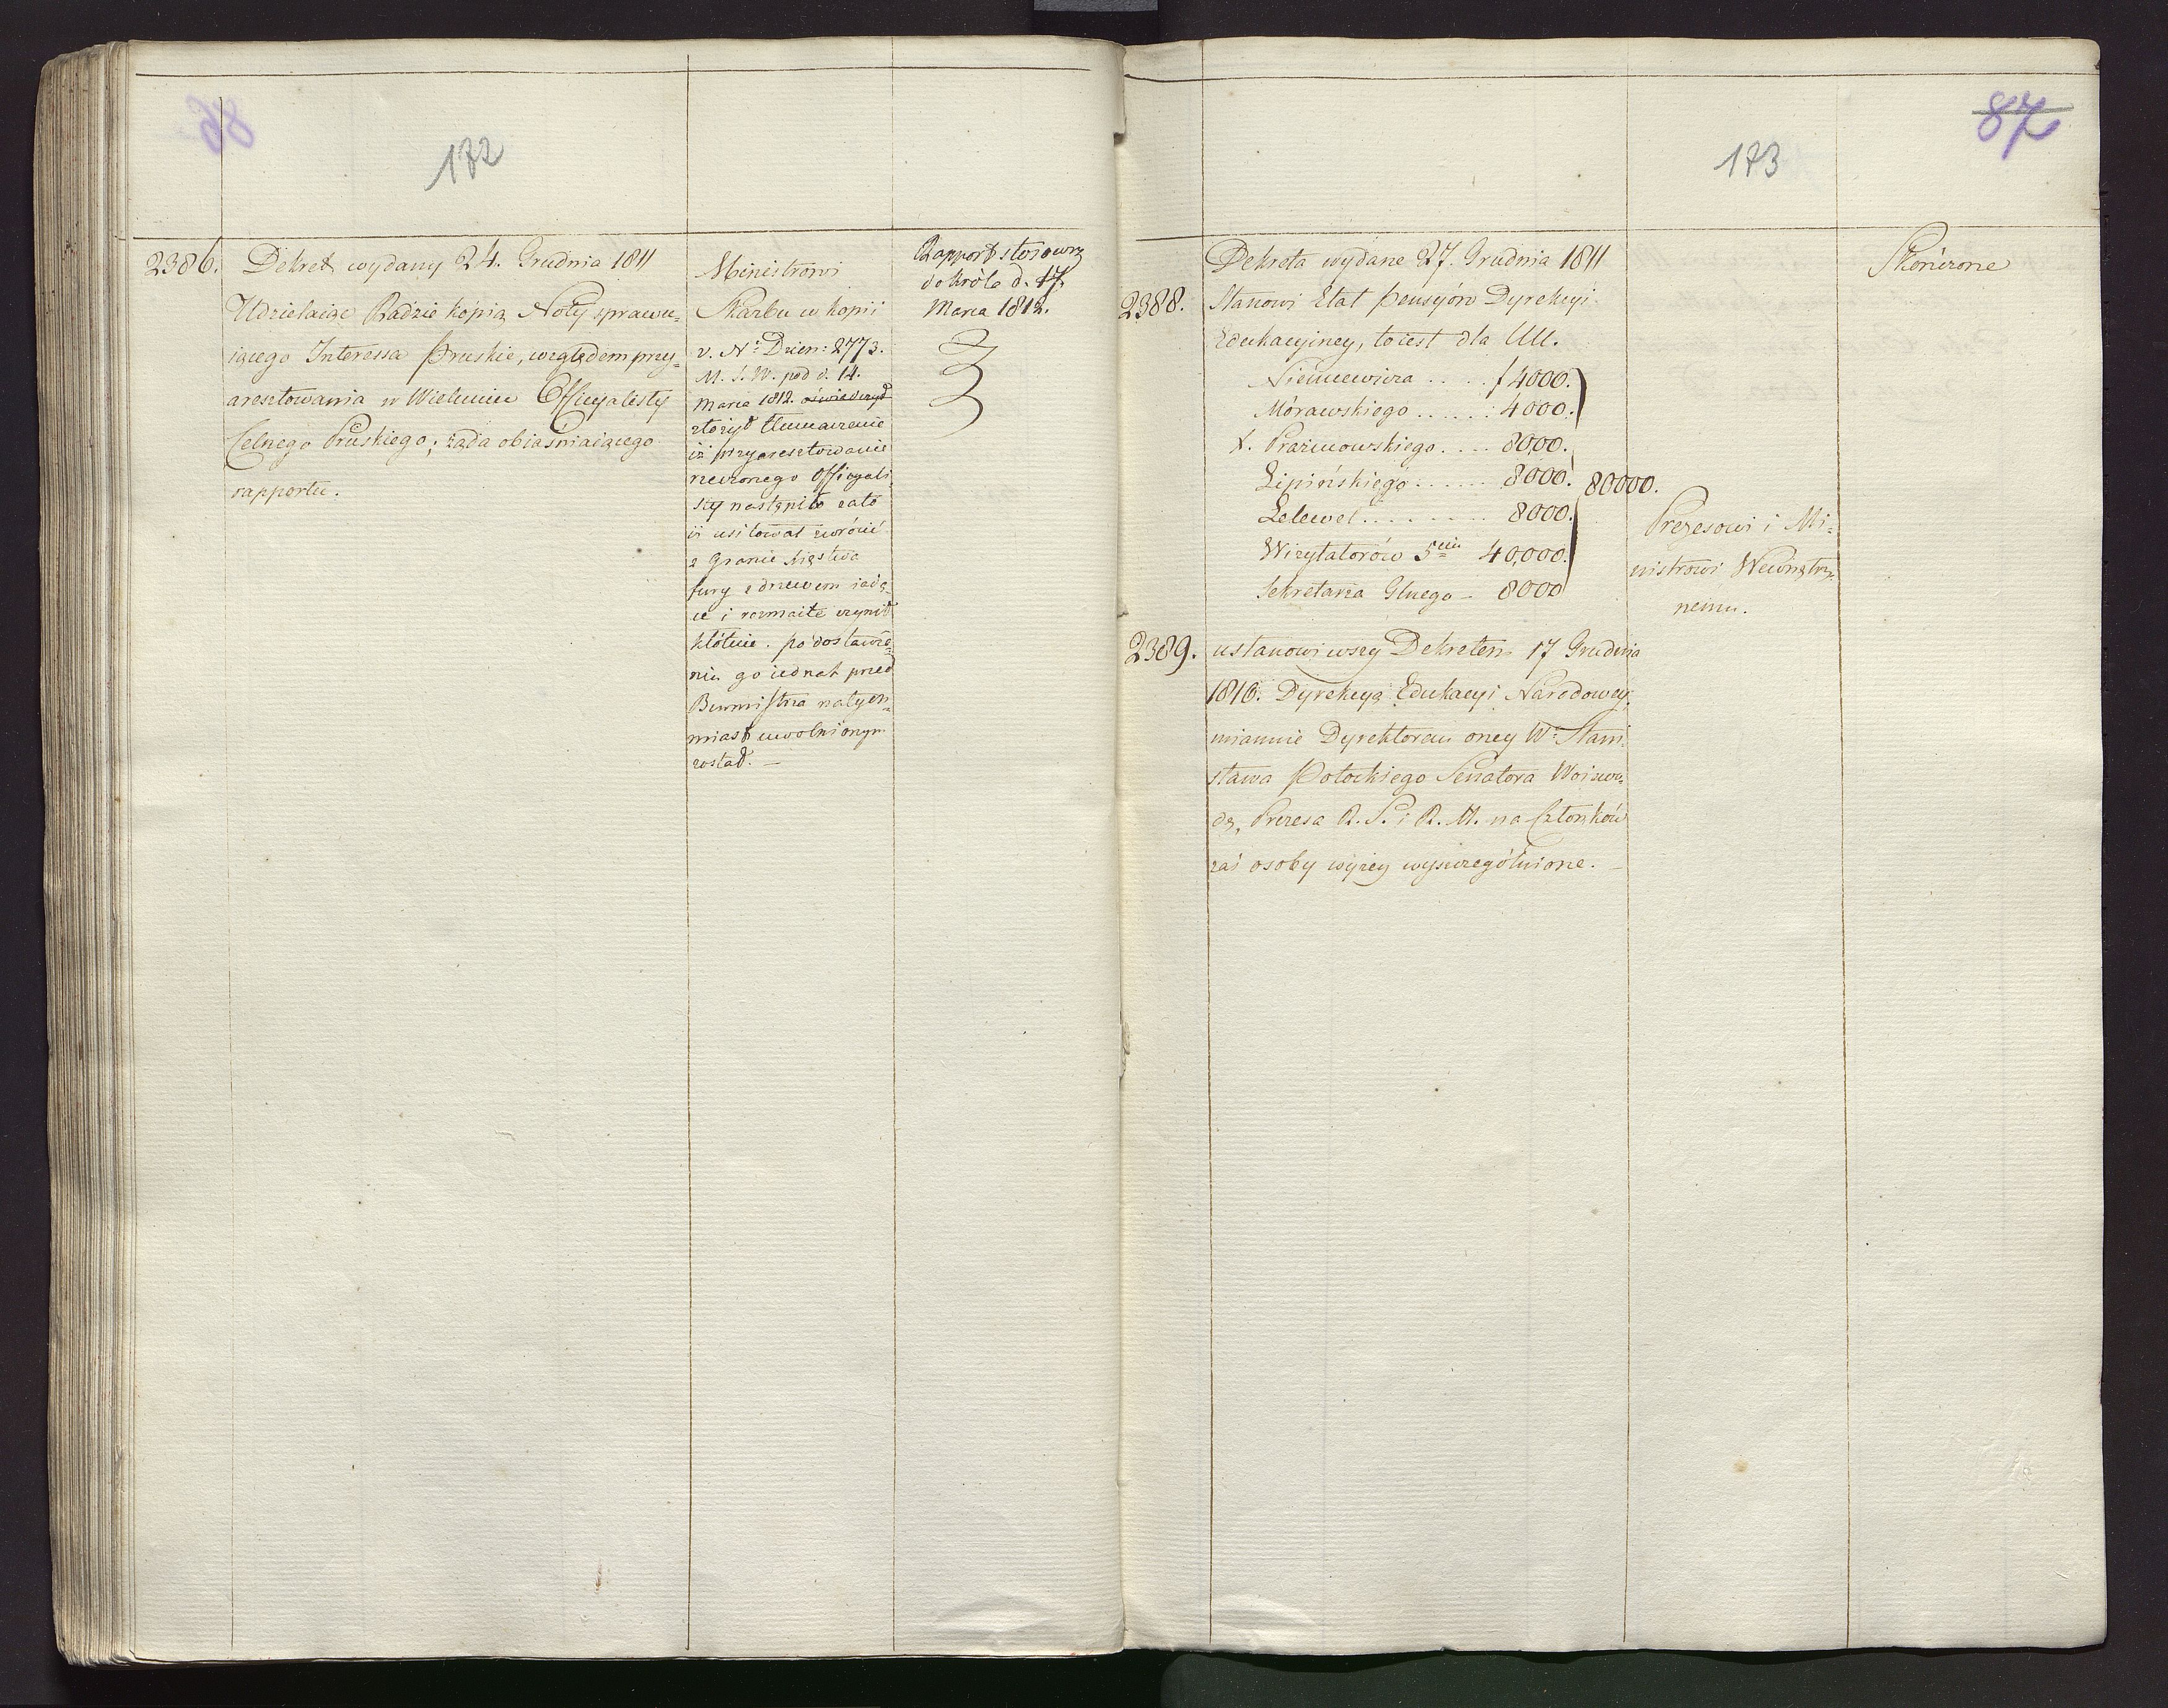 172
2386. Dekret wydany 24. Grudnia 1811
Udzielaiąc Radzie kopią Noty sprawu=
iącego Interessa Pruskie, względem przy=
aresztowania w Wieluniu Officyalisty
Celnego Pruskiego; żąda obiaśniaiącego
rapportu.
Ministrowi
Skarbu w kopii
v. Nr Dzien: 2773.
M. S. W. pod d. 14.
Marca 1812. oświadczył
złożył tłumaczenie
iż przyaresztowanie
rzeczonego Officyali=
sty nastąpiło zato
iż usiłował zwrócić
z Granic Xięstwa
fury z drzewem iadą=
ce i rozmaite czynił
kłótnie. po dostawie=
niu go iednak przed
Burmistrza natych=
miast uwolnionym
został. —
Rapport stosowny
do Króla d. 17.
Marca 1812.
87
173
Dekreta wydane 27. Grudnia 1811
2388. Stanowi Etat pensyów Dyrekcyi
Edukacyiney, toiest dla UU.
Niemcewicza . . . . f 4000.
Mórawskiego . . . . . . 4000.
X. Prazmowskiego . . . . 8000.
Lipińskiego . . . . . . 8000.
80000.
Lelewel . . . . . . . . 8000.
Wizytatorów 5ciu 40,000.
Sekretarza Glnego – 8000
Prezesowi i Mi=
nistrowi Wewnętrz=
nemu.
Skończone
2389. ustanowiwszy Dekretem 17 Grudnia
1810. Dyrekcyą Edukacyi Narodowey,
mianuie Dyrektorem oney Wo Stani=
sława Potockiego Senatora Woiewo=
dę, Prezesa R. S. i R. M. na Członków
zaś osoby wyżey wyszczególnione. —